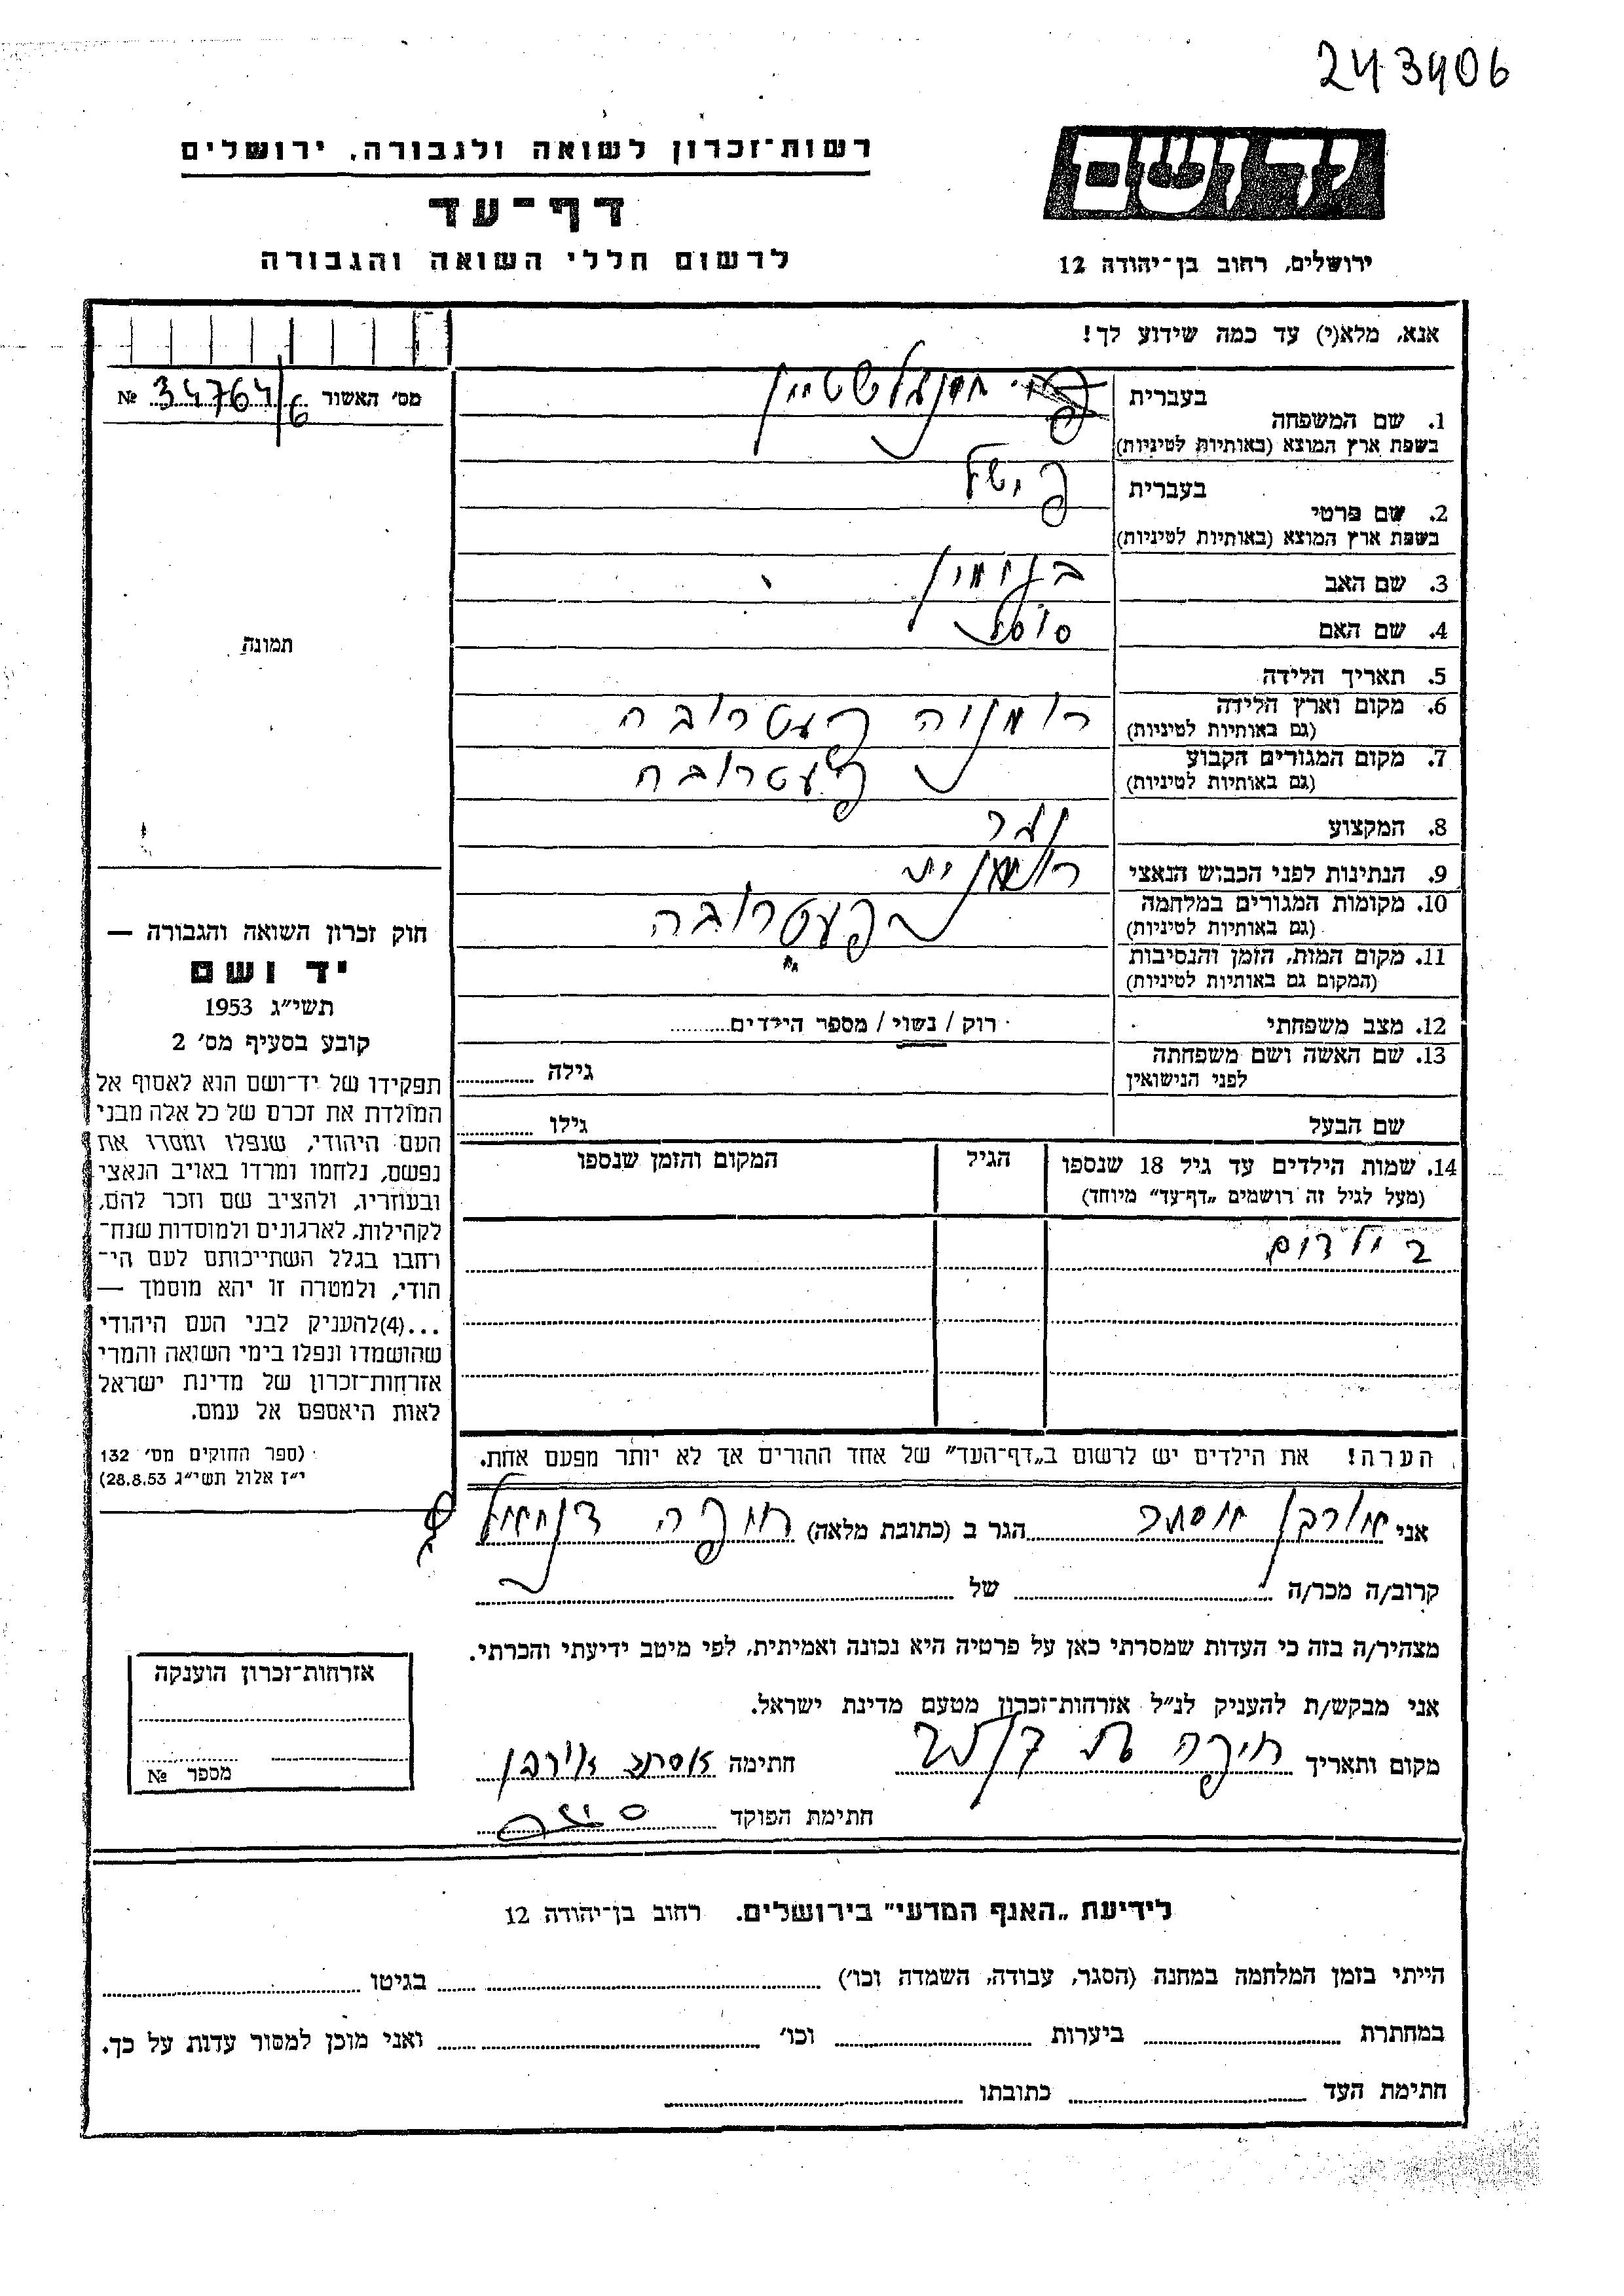 243406
ידושם
רשות־זכרון לשואה ולגבורה, ירושלים
דף־עד
לרשום חללי השואה והגבורה
ירושלים, רחוב בן־יהודה 12
אנא, מלא(י) עד כמה שידוע לך!
מס' האשור 34764/6 №
תמונה
1. שם המשפחה
בעברית
בשפת ארץ המוצא (באותיות לטיניות)
2. שם פרטי
בעברית פישל
בשפת ארץ המוצא (באותיות לטיניות)
3. שם האב בנימין
4. שם האם
5. תאריך הלידה
6. מקום וארץ הלידה
(גם באותיות לטיניות)
7. מקום המגורים הקבוע
(גם באותיות לטיניות)
8. המקצוע נגר
9. הנתינות לפני הכבוש הנאצי
10. מקומות המגורים במלחמה פעטרובה
(גם באותיות לטיניות)
11. מקום המות, הזמן והנסיבות
(המקום גם באותיות לטיניות)
12. מצב משפחתי רוק / נשוי / מספר הילדים..........
13. שם האשה ושם משפחתה
לפני הנישואין
גילה ..........
שם הבעל גילו ..........
14. שמות הילדים עד גיל 18 שנספו
(מעל לגיל זה רושמים „דף־עד" מיוחד)
הגיל
המקום והזמן שנספו
2 ילדים
הערה! את הילדים יש לרשום ב„דף־העד" של אחד ההורים אך לא יותר מפעם אחת.
חוק זכרון השואה והגבורה —
יד ושם
תשי"ג 1953
קובע בסעיף מס' 2
תפקידו של יד־ושם הוא לאסוף אל
המולדת את זכרם של כל אלה מבני
העם היהודי, שנפלו ומסרו את
נפשם, נלחמו ומרדו באויב הנאצי
ובעוזריו, ולהציב שם וזכר להם,
לקהילות, לארגונים ולמוסדות שנח־
רחבו בגלל השתייכותם לעם הי־
הודי, ולמטרה זו יהא מוסמך —
...(4)להעניק לבני העם היהודי
שהושמדו ונפלו בימי השואה והמרי
אזרחות־זכרון של מדינת ישראל
לאות היאספם אל עמם.
(ספר החוקים מס' 132
י"ז אלול תשי"ג 28.8.53)
אני אורבן אסתר הגר ב (כתובת מלאה) חיפה
קרוב/ה מכר/ה .......... של ..........
מצהיר/ה בזה כי העדות שמסרתי כאן על פרטיה היא נכונה ואמיתית, לפי מיטב ידיעתי והכרתי.
אני מבקש/ת להעניק לנ"ל אזרחות־זכרון מטעם מדינת ישראל.
מקום ותאריך חיפה חתימה אסתר אורבן
חתימת הפוקד
אזרחות־זכרון הוענקה
מספר №
לידיעת „האגף המדעי" בירושלים. רחוב בן־יהודה 12
הייתי בזמן המלחמה במחנה (הסגר, עבודה, השמדה וכו') .......... בגיטו ..........
במחתרת .......... ביערות .......... וכו' .......... ואני מוכן למסור עדות על כך.
חתימת העד .......... כתובתו ..........